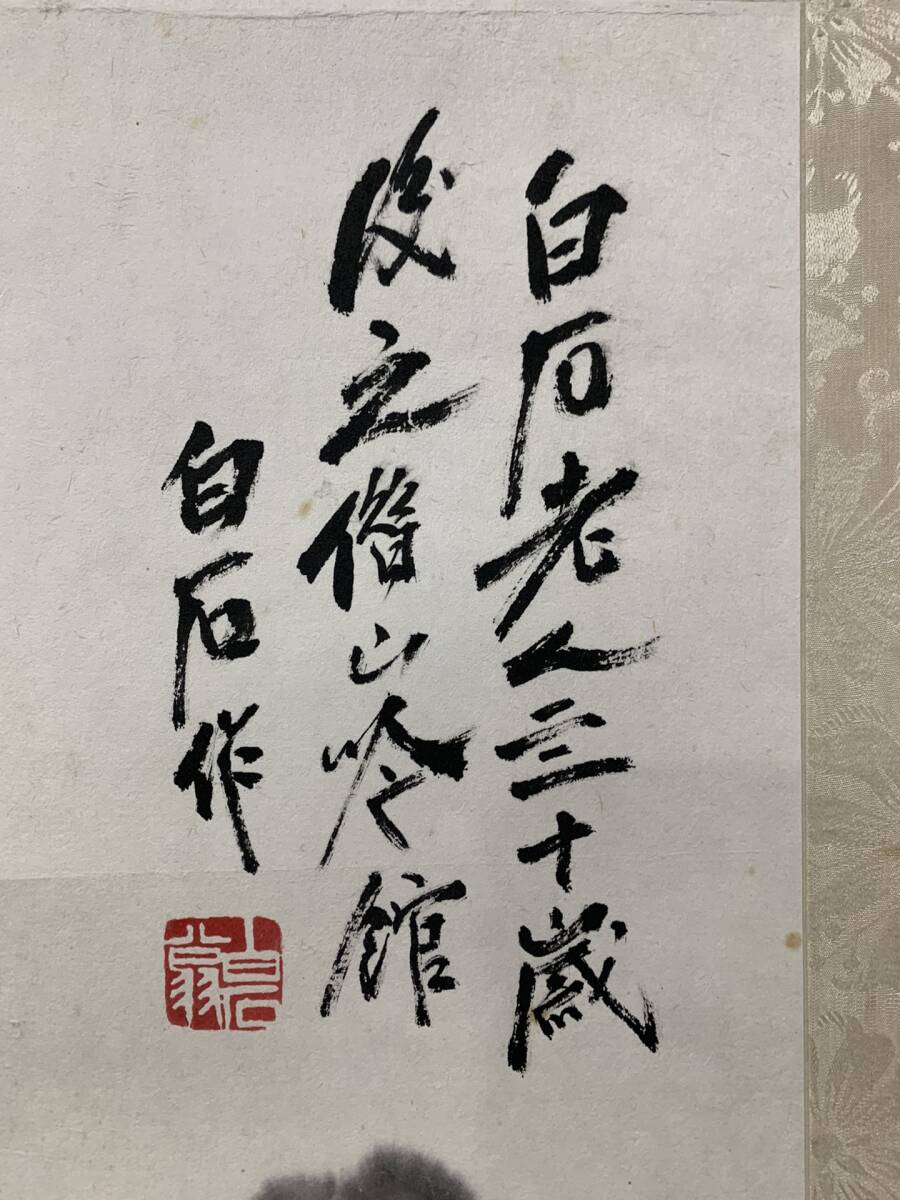 白石老人三十歲
後之借山吟館
白石作
白石翁